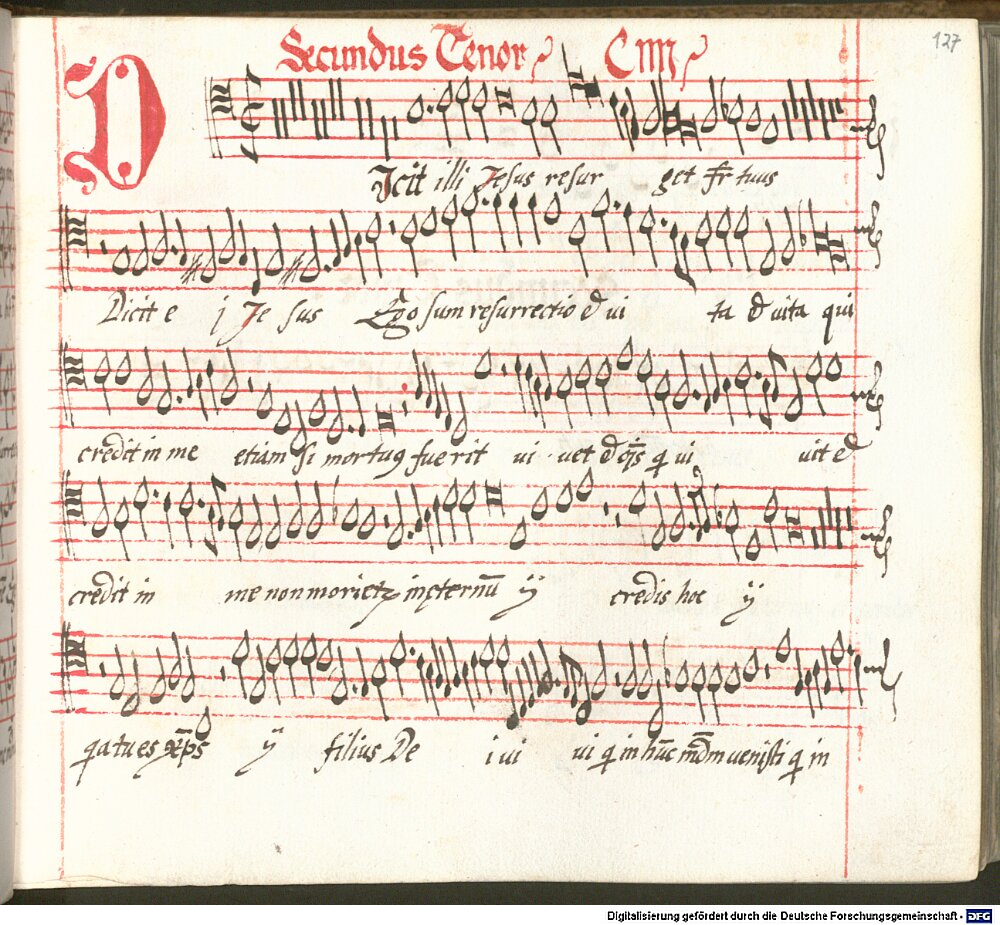 127
Secundus Tenor
DIcit illi Jesus resur get fr̄ tuus
Dicit e j Je sus Ego sum resurrectio & vi ta & vita qui
credit in me etiam si mortuꝯ fuerit vi vet & oīs q vi vit &
credit in me non morietꝝ in ęternū ij credis hoc ij
qa tu es xp̄s ij filius De i vi vi q in hūc mūdm venisti q in
Digitalisierung gefördert durch die Deutsche Forschungsgemeinschaft - DFG